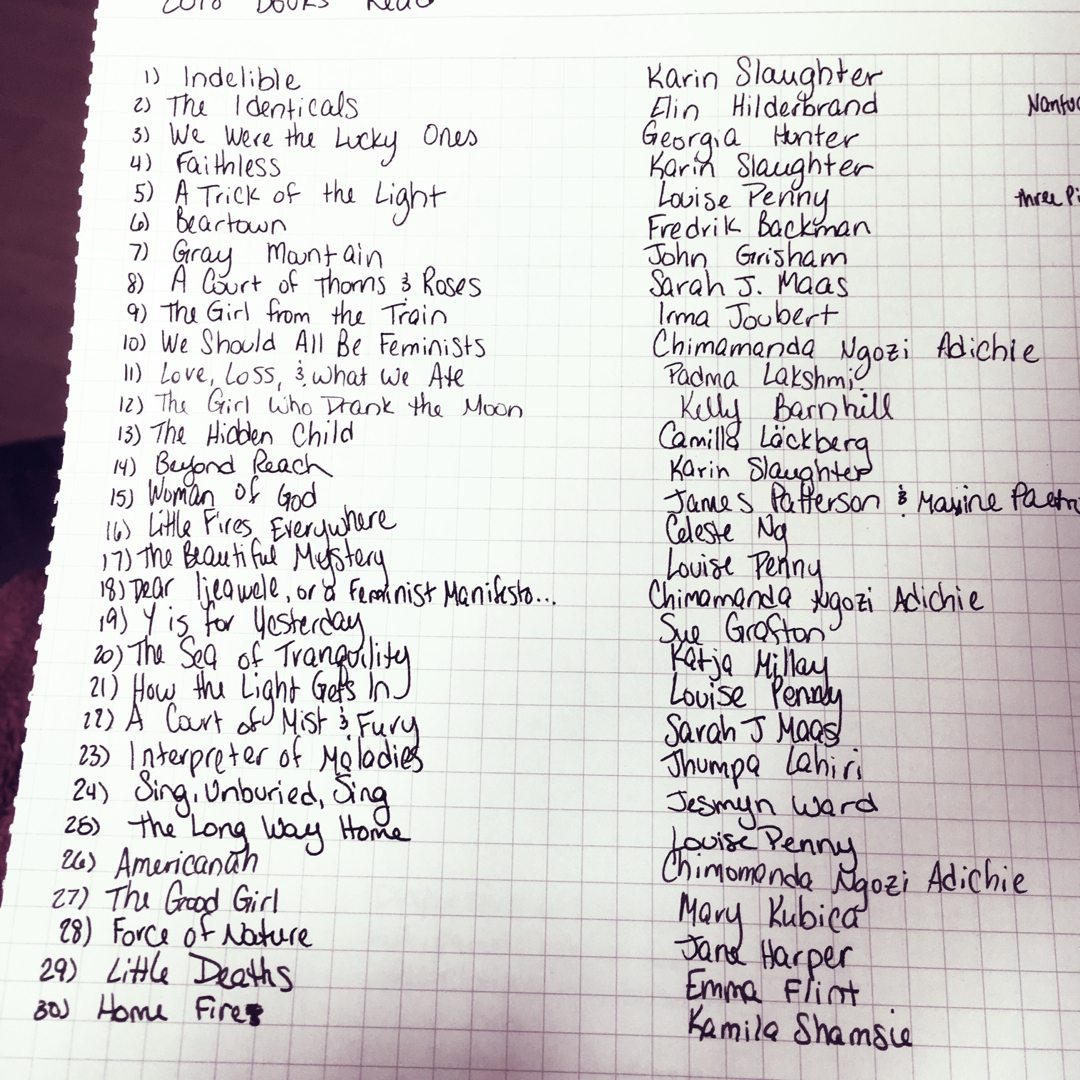 2018 Books Read
1) Indelible Karin Slaughter
2) The Identicals Elin Hilderbrand
3) We Were the Lucky Ones Georgia Hunter
4) Faithless Karin Slaughter
5) A Trick of the Light Louise Penny three
6) Beartown Fredrik Backman
7) Gray Mountain John Grisham
8) A Court of Thorns & Roses Sarah J. Maas
9) The Girl from the Train Irma Joubert
10) We Should All Be Feminists Chimamanda Ngozi Adichie
11) Love, Loss, & What We Ate Padma Lakshmi
12) The Girl Who Drank the Moon Kelly Barnhill
13) The Hidden Child Camilla Läckberg
14) Beyond Reach Karin Slaughter
15) Woman of God James Patterson & Maxine
16) Little Fires Everywhere Celeste Ng
17) The Beautiful Mystery Louise Penny
18) Dear Ijeawele, or a Feminist Manifesto... Chimamanda Ngozi Adichie
19) Y is for Yesterday Sue Grafton
20) The Sea of Tranquility Katja Millay
21) How the Light Gets In Louise Penny
22) A Court of Mist & Fury Sarah J Maas
23) Interpreter of Maladies Jhumpa Lahiri
24) Sing, Unburied, Sing Jesmyn Ward
25) The Long Way Home Louise Penny
26) Americanah Chimomonda Ngozi Adichie
27) The Good Girl Mary Kubica
28) Force of Nature Jane Harper
29) Little Deaths Emma Flint
30) Home Fire Kamila Shamsie